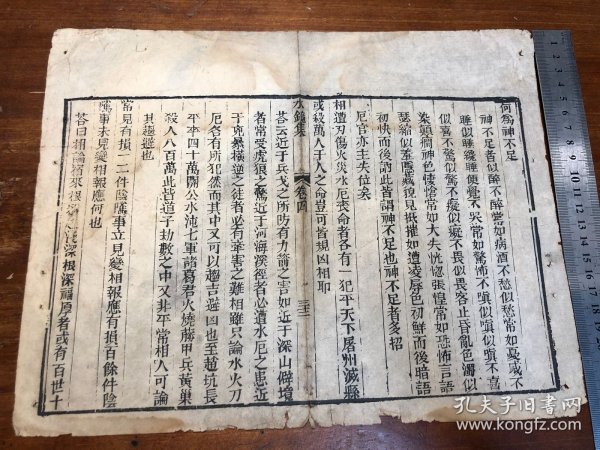 何為神不足
神不足者似醉不醉常如病酒不愁似愁常如憂戚不
睡似睡纔睡便覺不哭常如驚怖不嗔似嗔不喜
似喜不驚似驚不癡似癡不畏似畏容止昏亂色濁似
染顛癇神色悽愴常如大失恍惚張惶常如恐怖言語
瑟縮似羞隱藏貌見抵摧如遭凌辱色初鮮而後暗語
初快而後訥此皆謂神不足也神不足者多招
厄官亦主失位矣
相遭刃傷火災水厄喪命者各有一犯平天下屠州滅縣
或殺萬人于人之命豈可皆規凶相耶
水鏡集
卷四
三十三
荅云近于兵戈之所防有刀箭之害如近于深山僻壤
者常受虎狼之驚近于河海溪徑者必遭水厄之患近
于兇然橫逆之徒者必有牽害之難相雖只論水火刀
厄各有所犯然而其中又可以趨吉避凶也至趙坑長
平卒四十萬關公水沌七軍諸葛君火燒藤甲兵黃巢
殺人八百萬此皆道于劫數之中又非平常相人可論
其趨避也
常見有損一二件陰隲事立見變相報應有損百餘件陰
隲事未見變相報應何也
荅曰相論禍來根淺深根深福厚者或有百世十
孔夫子旧书网
www.kongfz.com